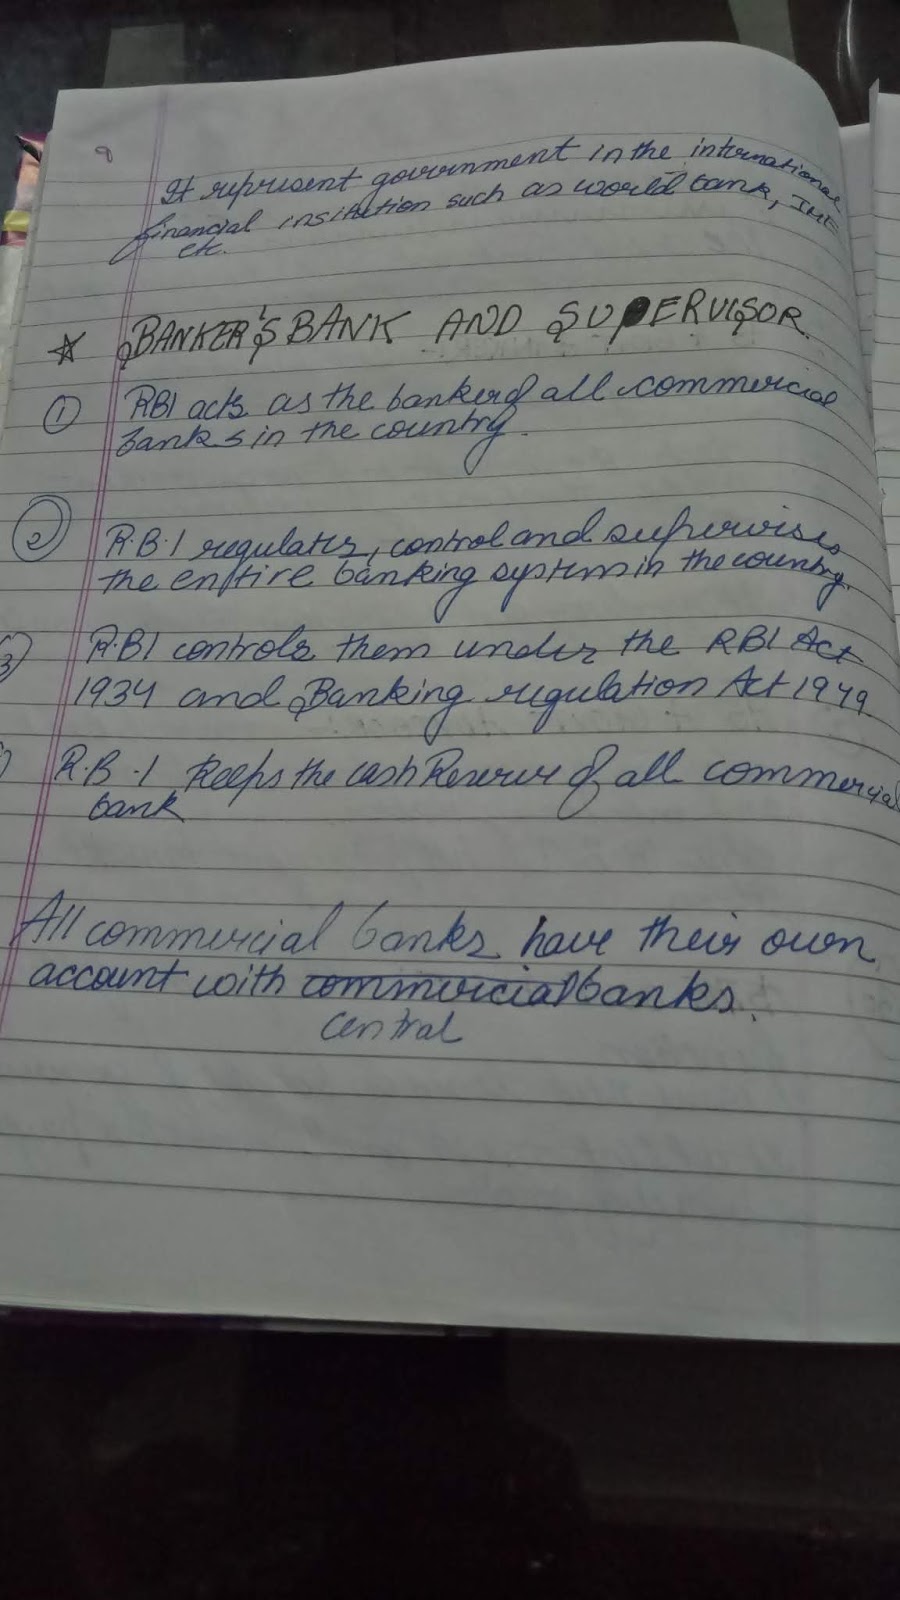 9
It represent government in the international
financial insitution such as world bank, IMF
etc.
BANKER'S BANK AND SUPERVISOR.
① RBI acts as the banker of all commercial
banks in the country.
② R.B.I regulates, control and supervises
the entire banking system in the country.
3 R.BI controls them under the RBI Act
1934 and Banking regulation Act 1949
R.B.I Keeps the cash Reserve of all commercial
bank
All commercial banks have their own
account with commercial banks.
central